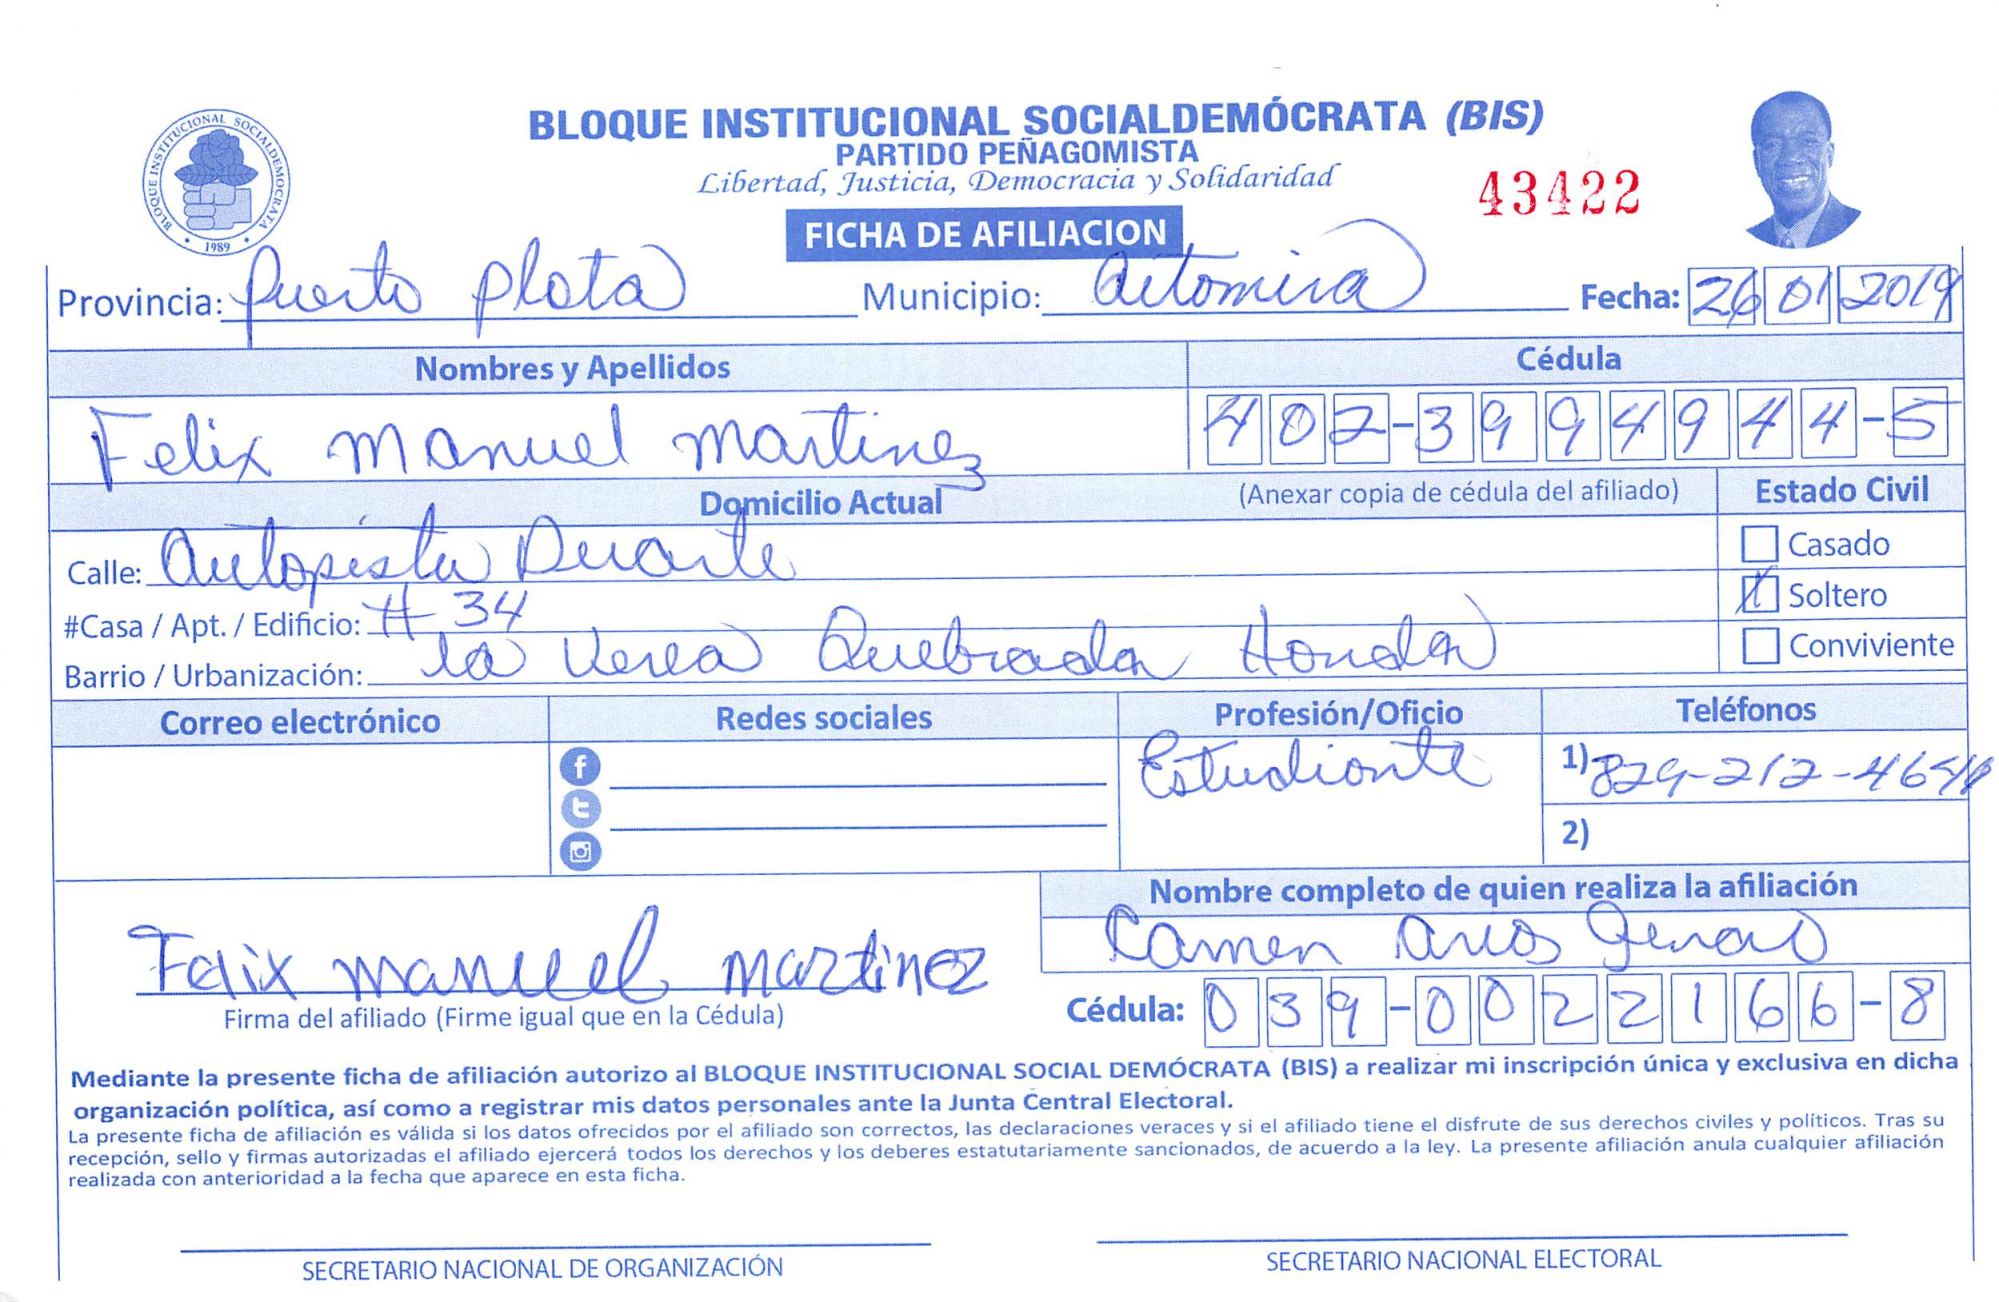 BLOQUE INSTITUCIONAL SOCIALDEMÓCRATA (BIS)
PARTIDO PEÑAGOMISTA
Libertad, Justicia, Democracia y Solidaridad
43422
BLOQUE INSTITUCIONAL SOCIALDEMOCRATA
1989
FICHA DE AFILIACION
Provincia: Puerto Plata Municipio: Altamira Fecha: 26 01 2019
Nombres y Apellidos Cédula
Felix Manuel Martinez 402-3994944-5
Domicilio Actual (Anexar copia de cédula del afiliado) Estado Civil
Calle: Autopista Duarte Casado
#Casa / Apt. / Edificio: # 34 Soltero
Barrio / Urbanización: la Verea Quebrada Honda Conviviente
Correo electrónico Redes sociales Profesión/Oficio Teléfonos
Estudiante 1) 829-212-4644
2)
Nombre completo de quien realiza la afiliación
Felix manuel martinez Carmen Arias
Firma del afiliado (Firme igual que en la Cédula) Cédula: 039-0022166-8
Mediante la presente ficha de afiliación autorizo al BLOQUE INSTITUCIONAL SOCIAL DEMÓCRATA (BIS) a realizar mi inscripción única y exclusiva en dicha
organización política, así como a registrar mis datos personales ante la Junta Central Electoral.
La presente ficha de afiliación es válida si los datos ofrecidos por el afiliado son correctos, las declaraciones veraces y si el afiliado tiene el disfrute de sus derechos civiles y políticos. Tras su
recepción, sello y firmas autorizadas el afiliado ejercerá todos los derechos y los deberes estatutariamente sancionados, de acuerdo a la ley. La presente afiliación anula cualquier afiliación
realizada con anterioridad a la fecha que aparece en esta ficha.
SECRETARIO NACIONAL DE ORGANIZACIÓN SECRETARIO NACIONAL ELECTORAL